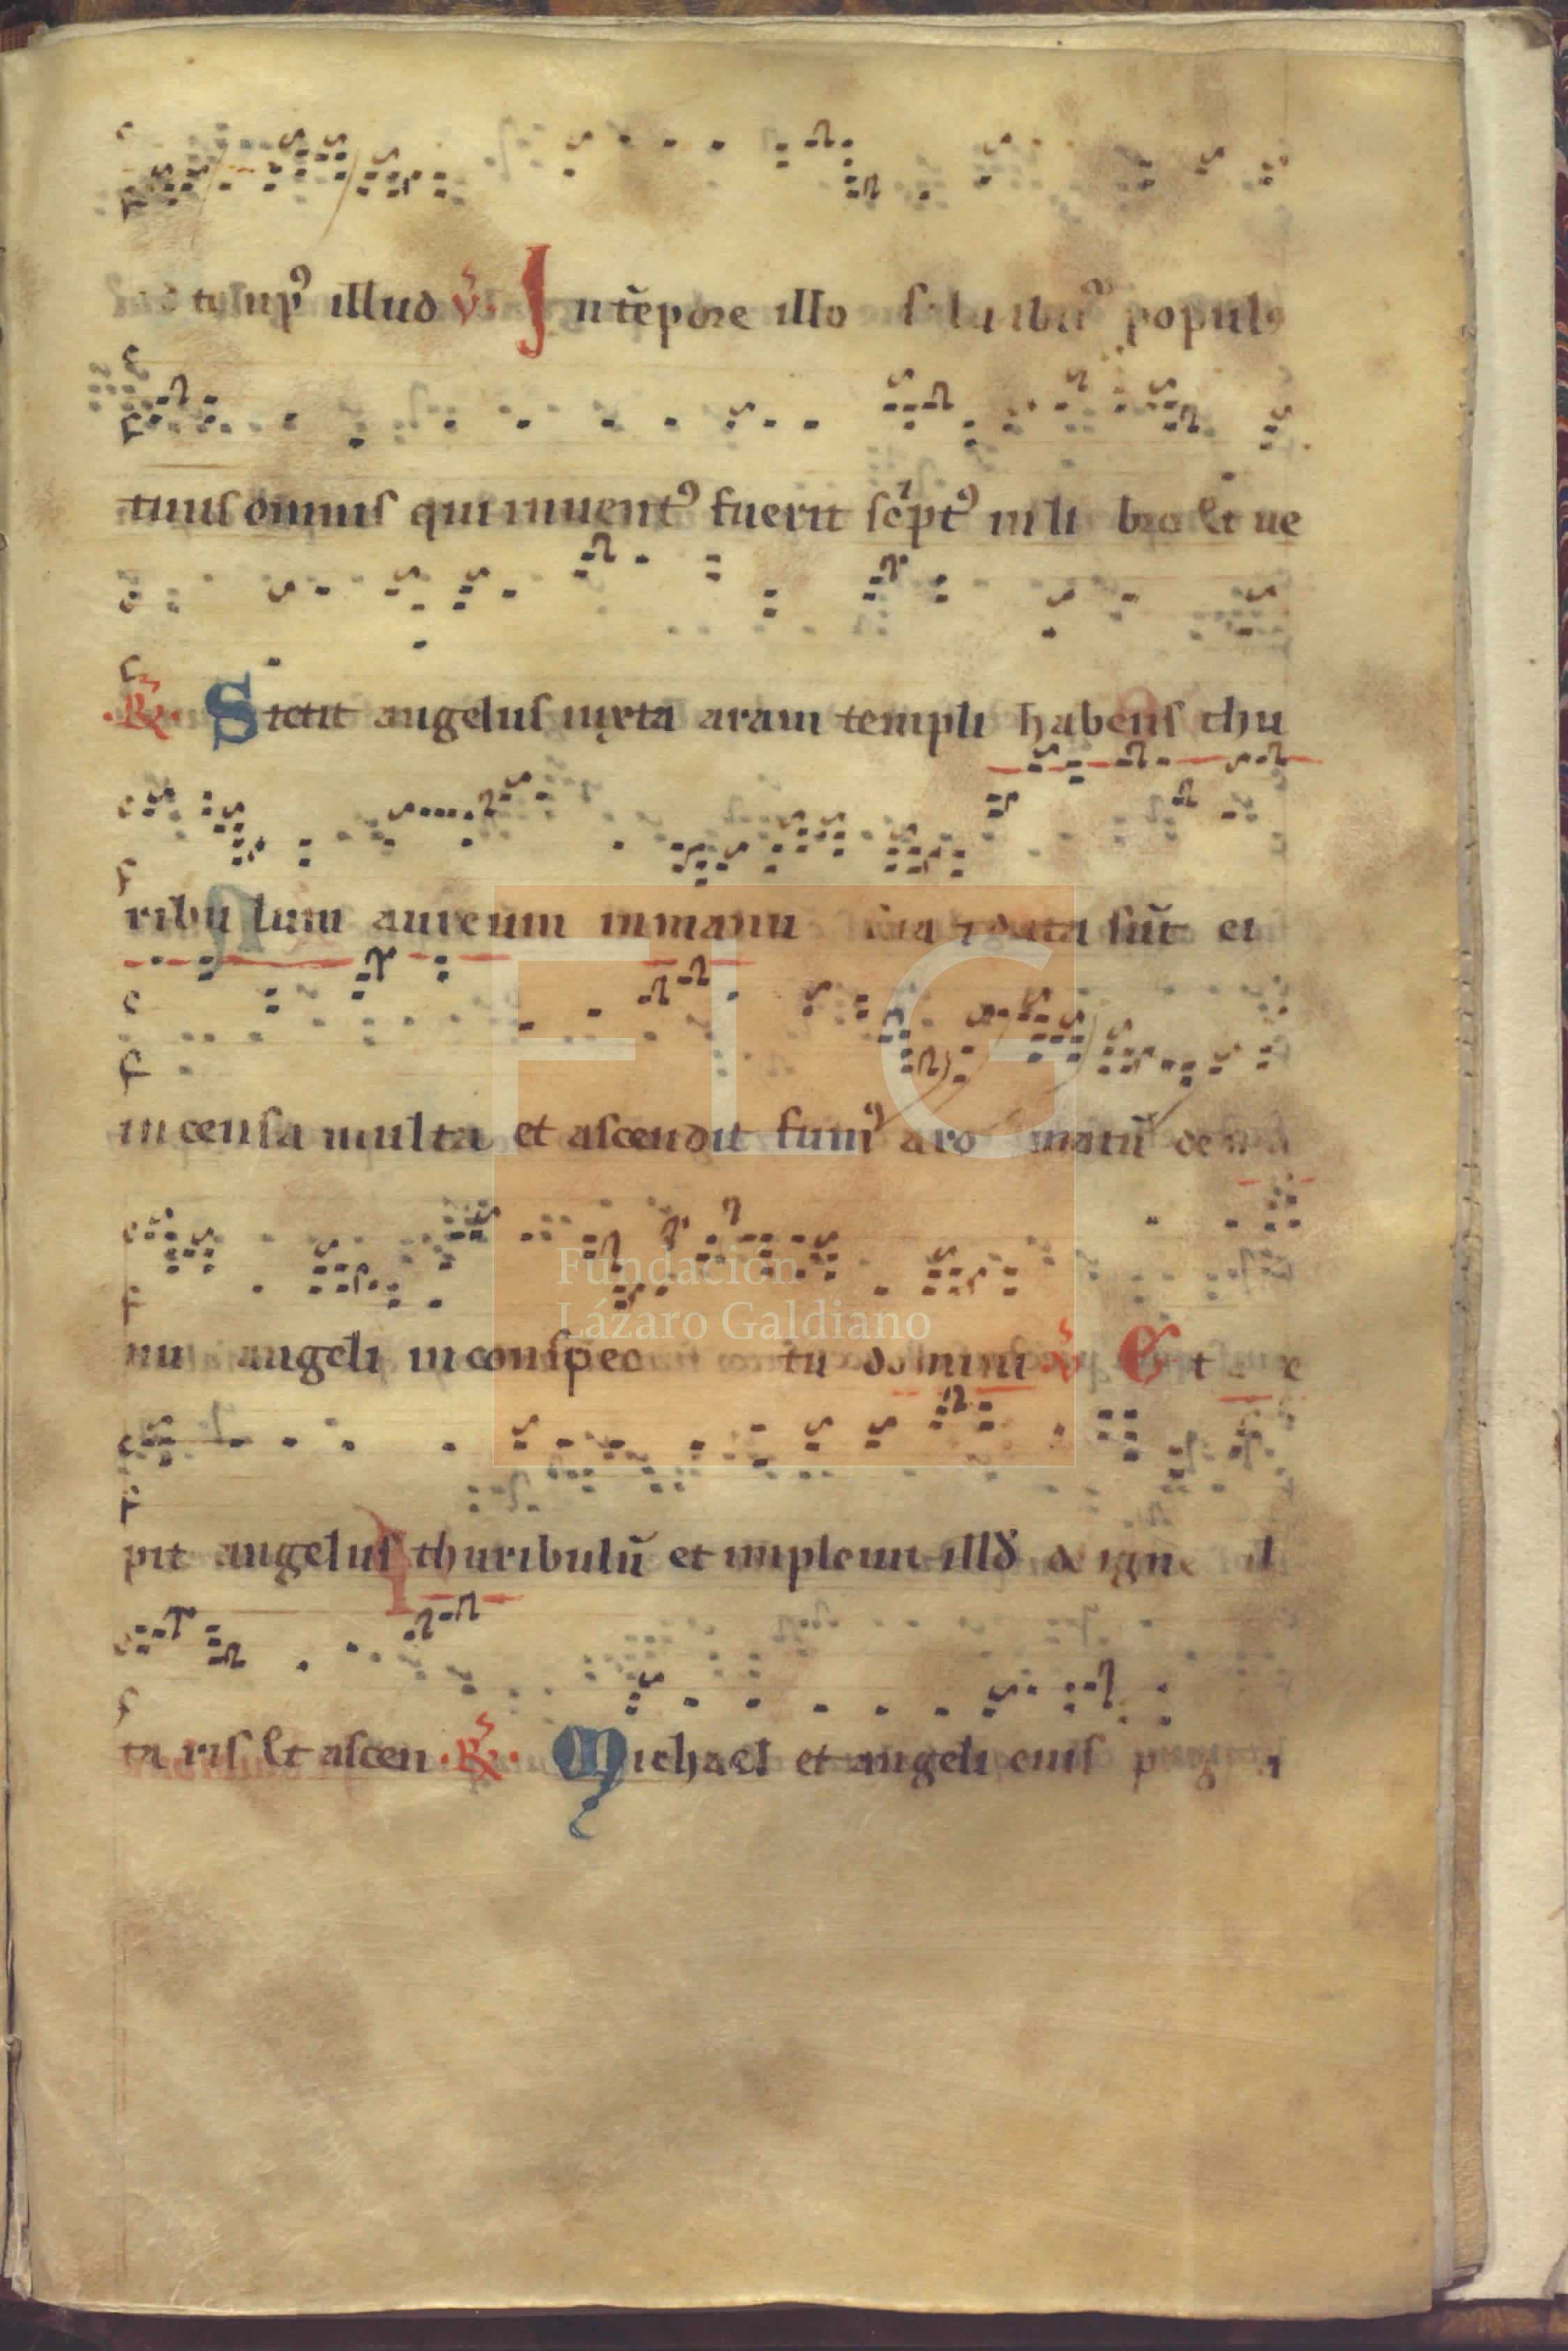 tusup⁹ illud v̄. In tēpore illo saluabit⁹ popul⁹
tuus omnis qui inuent⁹ fuerit sc̄pt⁹ in li bro Et ue
.R̄. Stetit angelus iuxta aram templi habens thu
ribu lum aureum in manu sua ⁊ data sūt ei
incensa multa et ascendit fum⁹ aro matū de ma
nu angeli in conspec tu domini v̄ Et ce
pit angelus thuribulū et impleuit illđ de igne al
ta ris Et ascen .R̄. Michael et angeli eius pugna
FLG
Fundación
Lázaro Galdiano